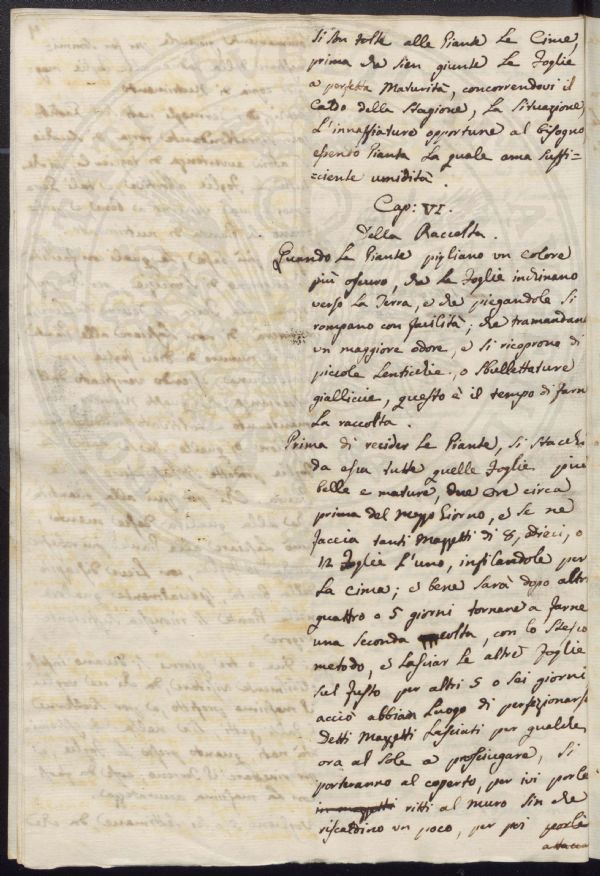 si son tolte alle Piante le Cime,
prima che sien giunte le Foglie
a perfetta Maturità, concorrendovi il
Caldo della Stagione, la Situazione,
l'innaffiature opportune al bisogno
essendo Pianta la quale ama suffi=
=ciente umidità.
Cap: VI.
Della Raccolta.
Quando le Piante pigliano un colore
più oscuro, che le Foglie inchinano
verso la Terra, e che piegandole si
rompano con facilità; che tramandano
un maggiore odore, e si ricoprono di
piccole Lenticchie, o Bullettature
giallicie, questo è il tempo di farne
la raccolta.
Prima di recider le Piante, si stacchi
da essa tutte quelle Foglie più
belle e mature, due Ore circa
prima del mezzo Giorno, e se ne
faccia tanti Mazzetti di 8, dieci, o
12 Foglie l'uno, infilandole per
la cima; e bene sarà dopo altri
quattro o 5 giorni tornare a farne
una seconda colta, con lo stesso
metodo, e lasciar le altre Foglie
sul fusto per altri 5 o sei giorni
acciò abbian luogo di perfezionarsi
detti Mazzetti lasciati per qualche
ora al Sole a prosciugare, si
porteranno al coperto, per ivi porle
in mazzetti ritti al muro sin che
riscaldino un poco, per poi porle
attacca